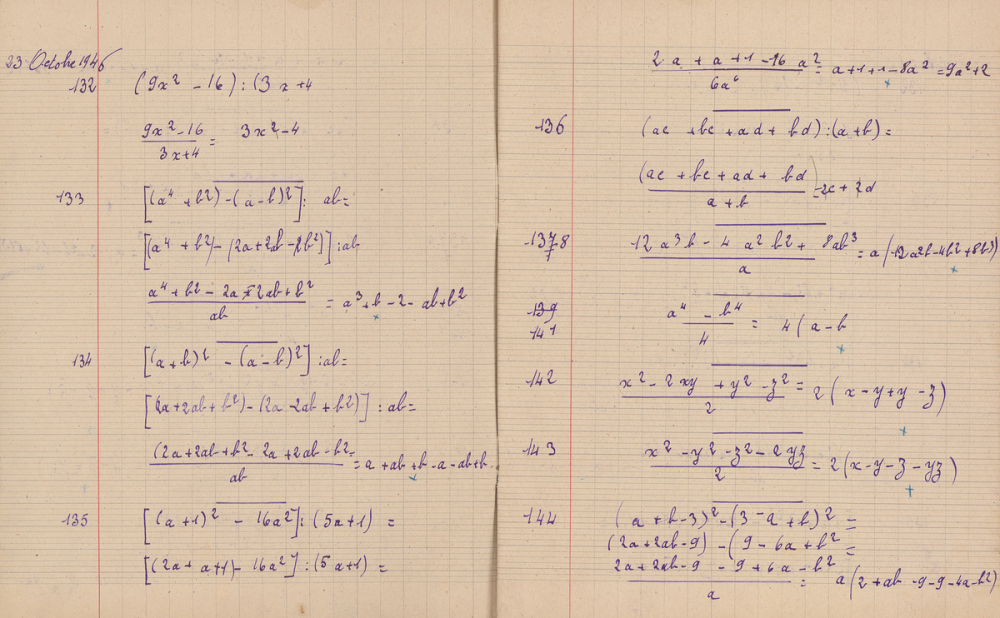 23 Octobre 1946
132 (9x² - 16) : (3x+4
9x² - 16 / 3x+4 = 3x² - 4
133 [(a⁴ + b²) - (a - b)²] : ab =
[(a⁴ + b²) - (2a + 2b - 2b²)] : ab
a⁴ + b² - 2a + 2ab + b² / ab = a³ + b - 2 - ab + b²
134 [(a + b)² - (a - b)²] : ab =
[2a + 2ab + b²) - (2a - 2ab + b²)] : ab =
(2a + 2ab + b² - 2a + 2ab - b² / ab = a + ab + b - a - ab + b
135 [(a+1)² - 16a²] : (5a+1) =
[(2a + a+1) - 16a²] : (5a+1) =
2a + a + 1 - 16a² / 6a⁶ = a+1+1 - 8a² = 9a² + 2
136 (ac + bc + ad + bd) : (a+b) =
(ac + bc + ad + bd) / a + b = 2c + 2d
137 8 12a³b - 4a²b² + 8ab³ / a = a(12a²b - 4b² + 8b³)
139
141 a⁴ - b⁴ / 4 = 4(a - b
142 x² - 2xy + y² - z² / 2 = 2(x - y + y - z)
143 x² - y² - z² - 2yz / 2 = 2(x - y - z - yz)
144 (a + b - 3)² - (3 - a + b)² =
(2a + 2ab - 9) - (9 - 6a + b² =
2a + 2ab - 9 - 9 + 6a - b² / a = a(2 + ab - 9 - 9 - 4a - b²)